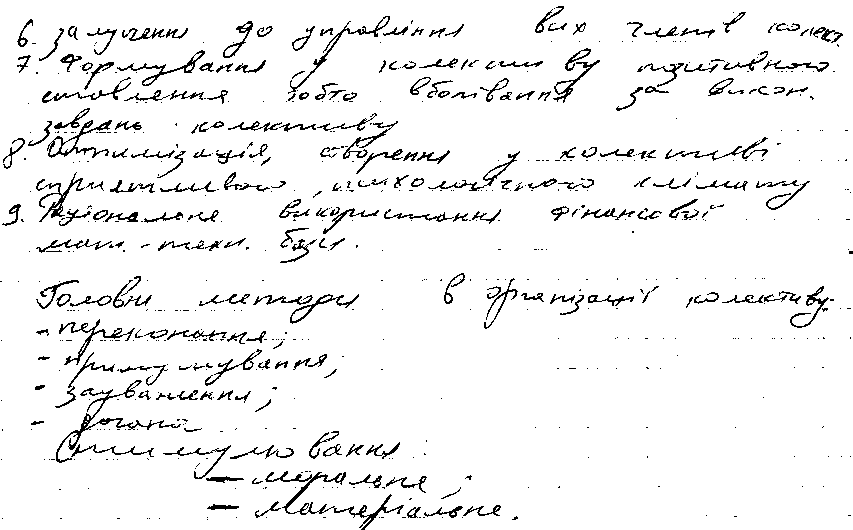 6. залучення до управління всіх членів колект.
7. Формування у колективу позитивного
ставлення тобто вболівання за викон.
завдань колективу
8. Оптимізація, створення у колективі
сприятливого психологічного клімату
9. Раціональне використання фінансової
мат.-техн. бази.
Головні методи в організації колективу:
- переконання;
- примушування;
- зауваження;
- догана
Стимулювання
— моральне;
— матеріальне.